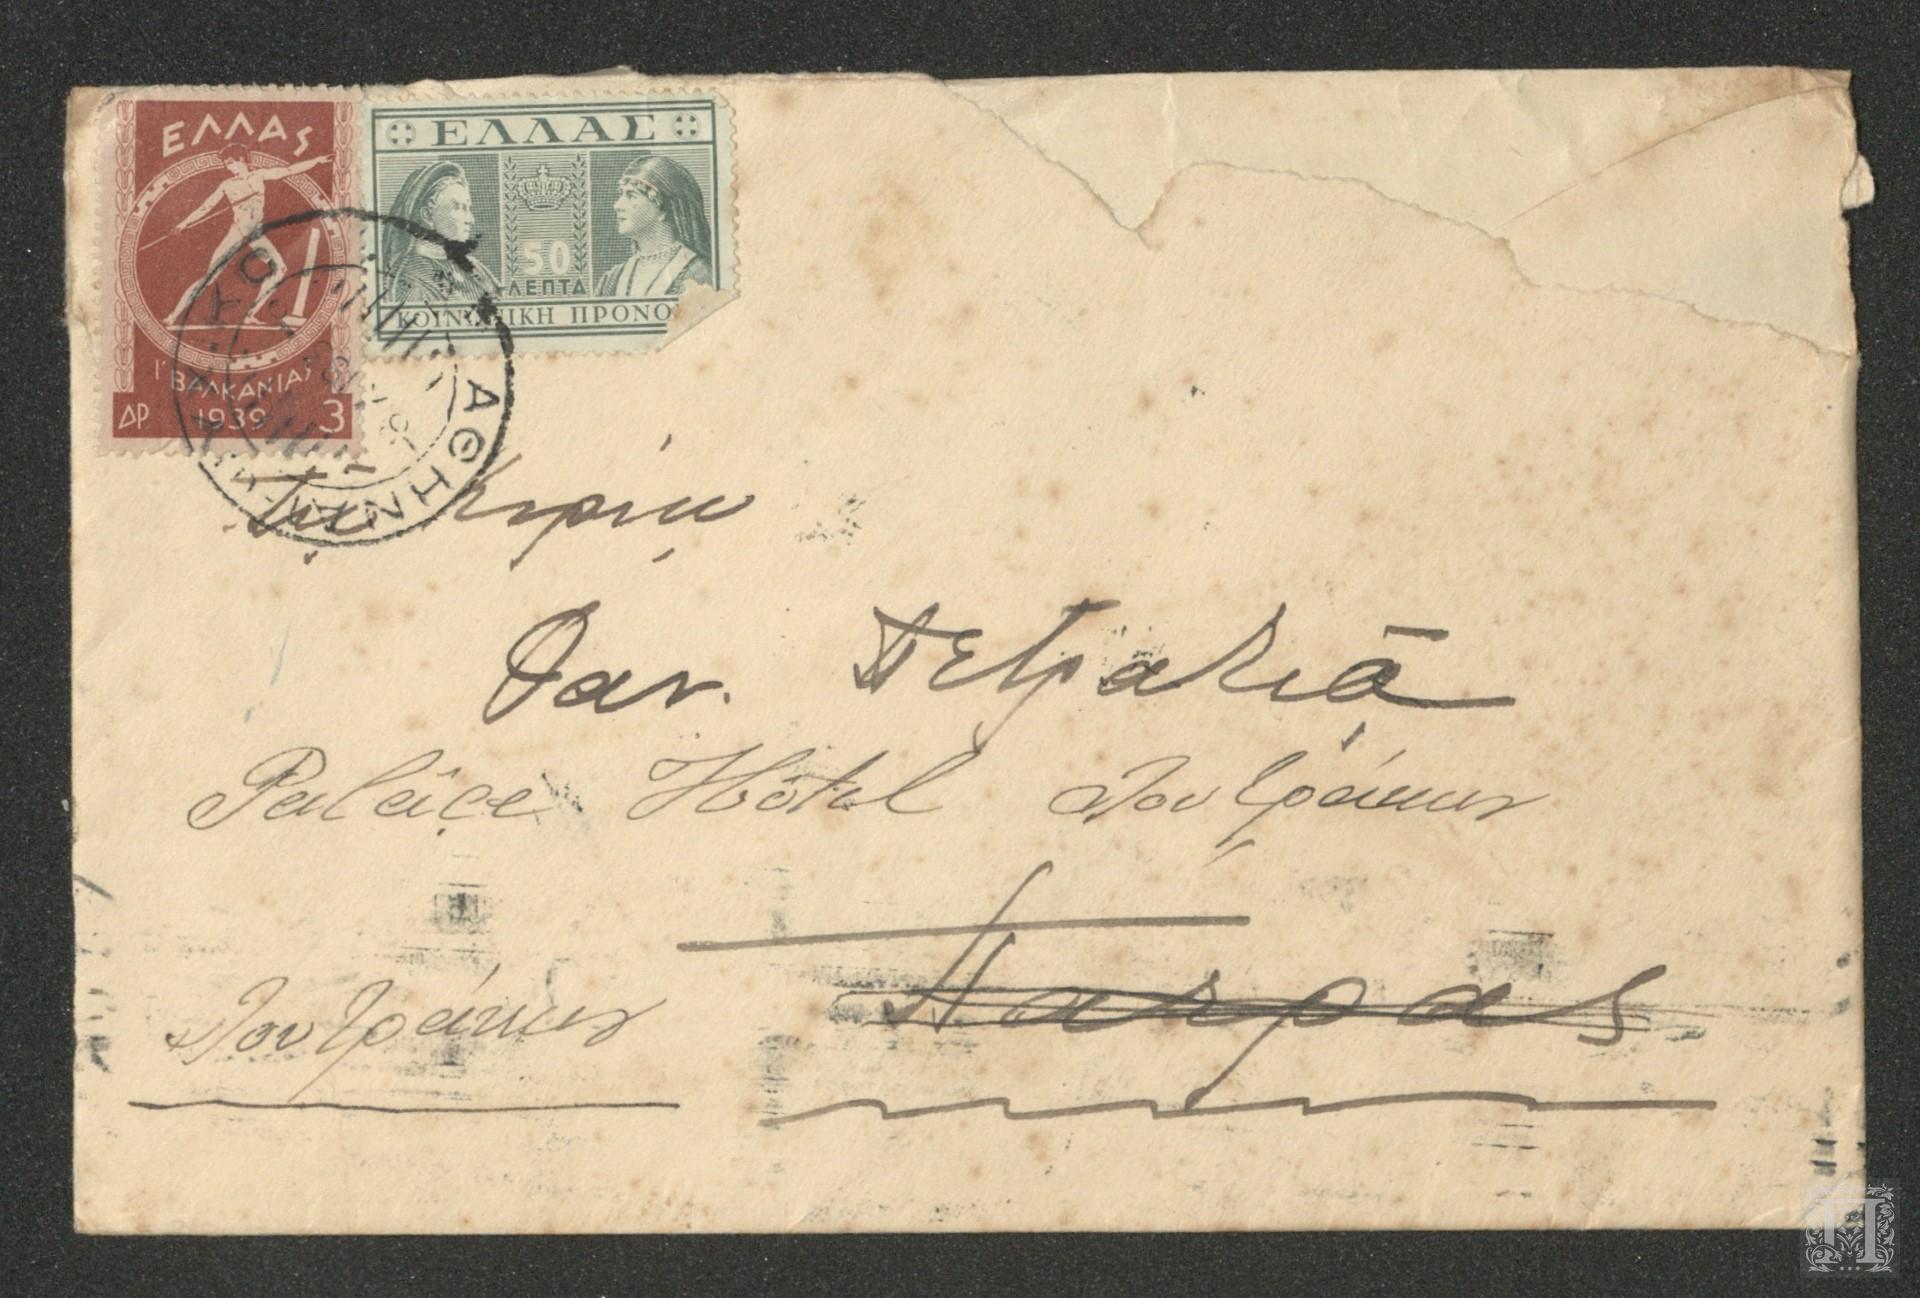 ΕΛΛΑΣ
Ι' ΒΑΛΚΑΝΙΑΣ
ΔΡ 1939 3
ΕΛΛΑΣ
50
ΛΕΠΤΑ
ΚΟΙΝΩΝΙΚΗ ΠΡΟΝΟ
ΑΘΗΝΑΙ
Τῳ Κυρίῳ
Παν. Πετραλιᾷ
Palâce Hôtel Λουτράκιον
Πατρας
Λουτράκιον